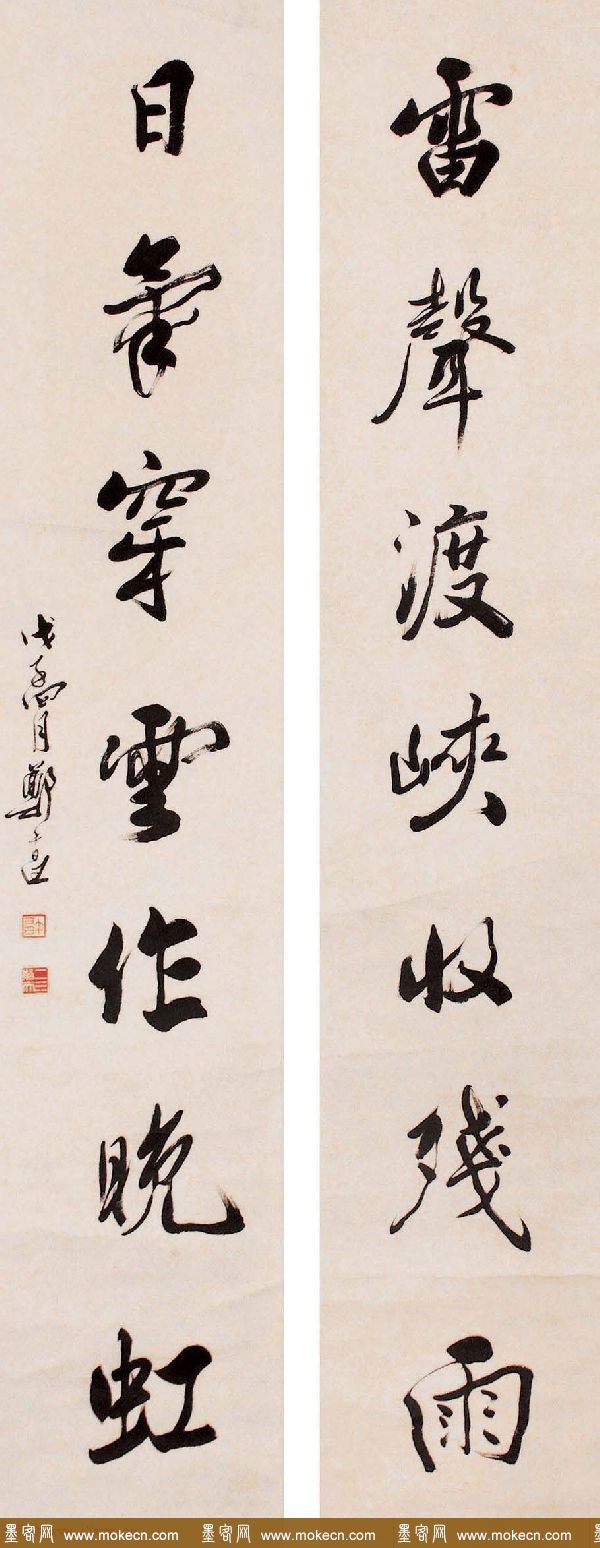 雷聲渡峽收殘雨
日氣穿雲作晚虹
戊子四月鄭
墨客网 www.mokecn.com 墨客网 www.mokecn.com 墨客网 www.mokecn.com